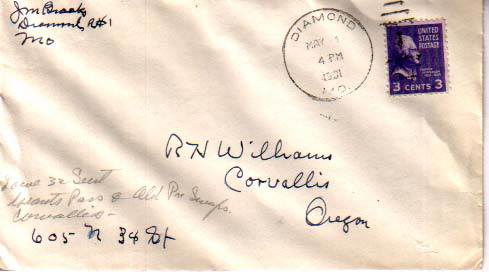 Jm Brooks
Diamond, R#1
Mo
DIAMOND
MAY 1
4 PM
MO.
UNITED
STATES
POSTAGE
3 CENTS 3
R N Williams
Corvallis
Oregon
32 Sent
Grants Pass & Old
Corvallis -
605 N 34 St